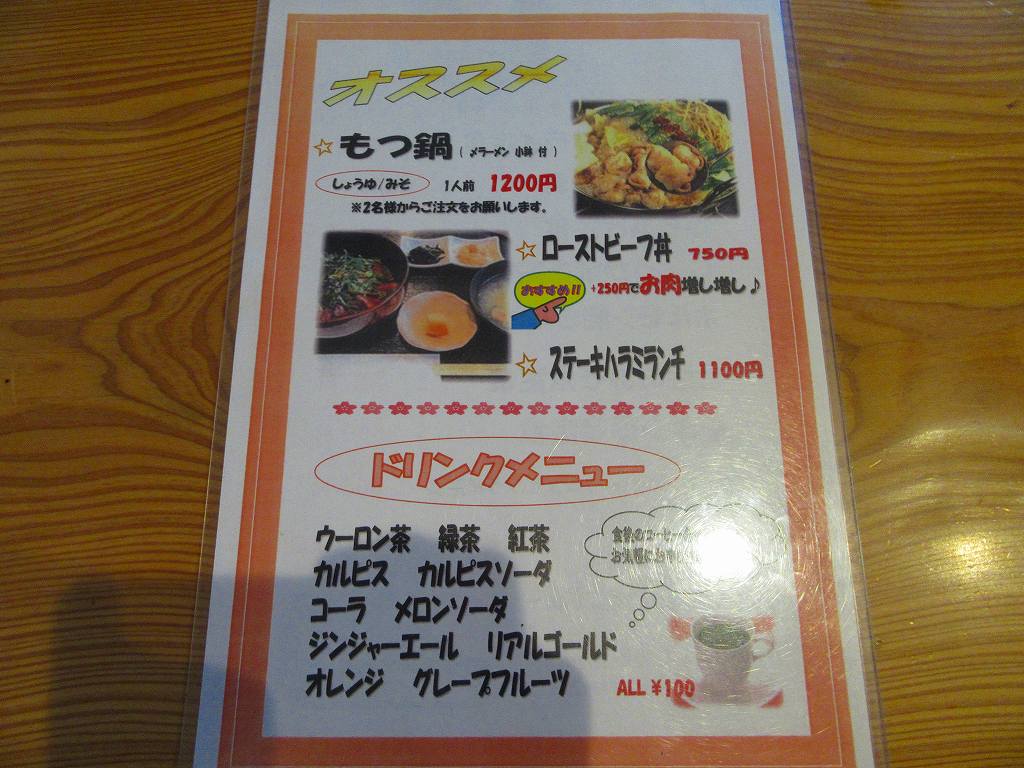 オススメ
☆もつ鍋 ( メラーメン 小鉢 付 )
しょうゆ/みそ 1人前 1200円
※2名様からご注文をお願いします。
☆ローストビーフ丼 750円
おすすめ!! +250円でお肉増し増し♪
☆ステーキハラミランチ 1100円
ドリンクメニュー
ウーロン茶 緑茶 紅茶
カルピス カルピスソーダ
コーラ メロンソーダ
ジンジャーエール リアルゴールド
オレンジ グレープフルーツ
食後のコーヒー
お気軽にお
ALL ¥100